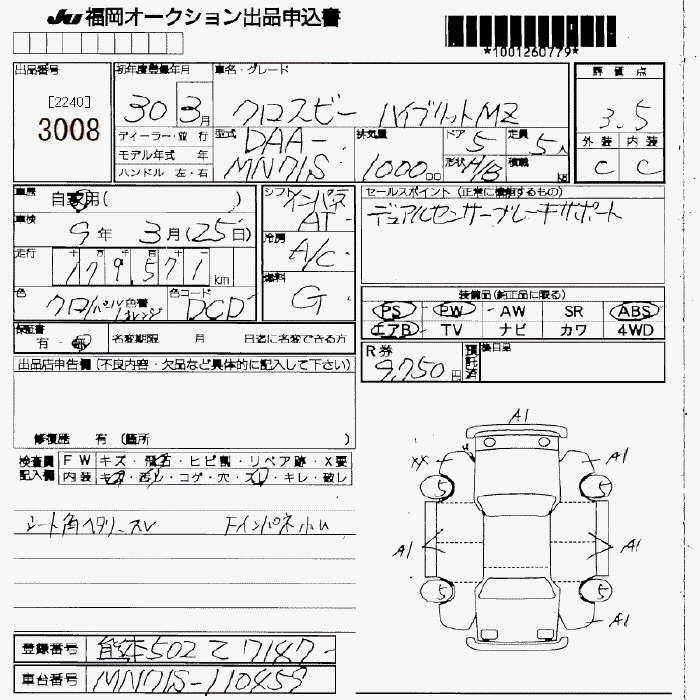 JU 福岡オークション出品申込書
*1001260779*
出品番号
[2240]
3008
初年度登録年月
30 3月
車名・グレード
クロスビー ハイブリットMZ
評価点
3.5
ディーラー・並行
モデル年式 年
ハンドル 左・右
型式
DAA-
MN71S
排気量
1000cc
ドア 5
形状 H/B
定員 5人
積載 kg
外装 内装
C C
車歴 自家用( )
車検 9年 3月(25日)
走行 十万千百十一
179,571km
色 クロ/パール 色替 オレンジ
色コード DCD
シフト インパネ AT
冷房 A/C
燃料 G
セールスポイント (正常に機能するもの)
デュアルセンサーブレーキサポート
装備品(純正品に限る)
PS・PW・AW SR ABS
エアB・TV ナビ カワ 4WD
保証書
有・無
名変期限 月 日迄に名変できる方
R券
9,750円
預託済
出品店申告欄(不良内容・欠品など具体的に記入して下さい)
修復歴 有 (箇所 )
検査員記入欄
FW キズ・飛石・ヒビ割・リペア跡・X要
内装 キズ・汚レ・コゲ・穴・スレ・キレ・破レ
シート角ヘタリ-スレ Fインパネ小ム
A1
XX
u
A1
5
5
A1
A1
5
5
A1
登録番号 熊本502 て 7147-
車台番号 MN71S-110459